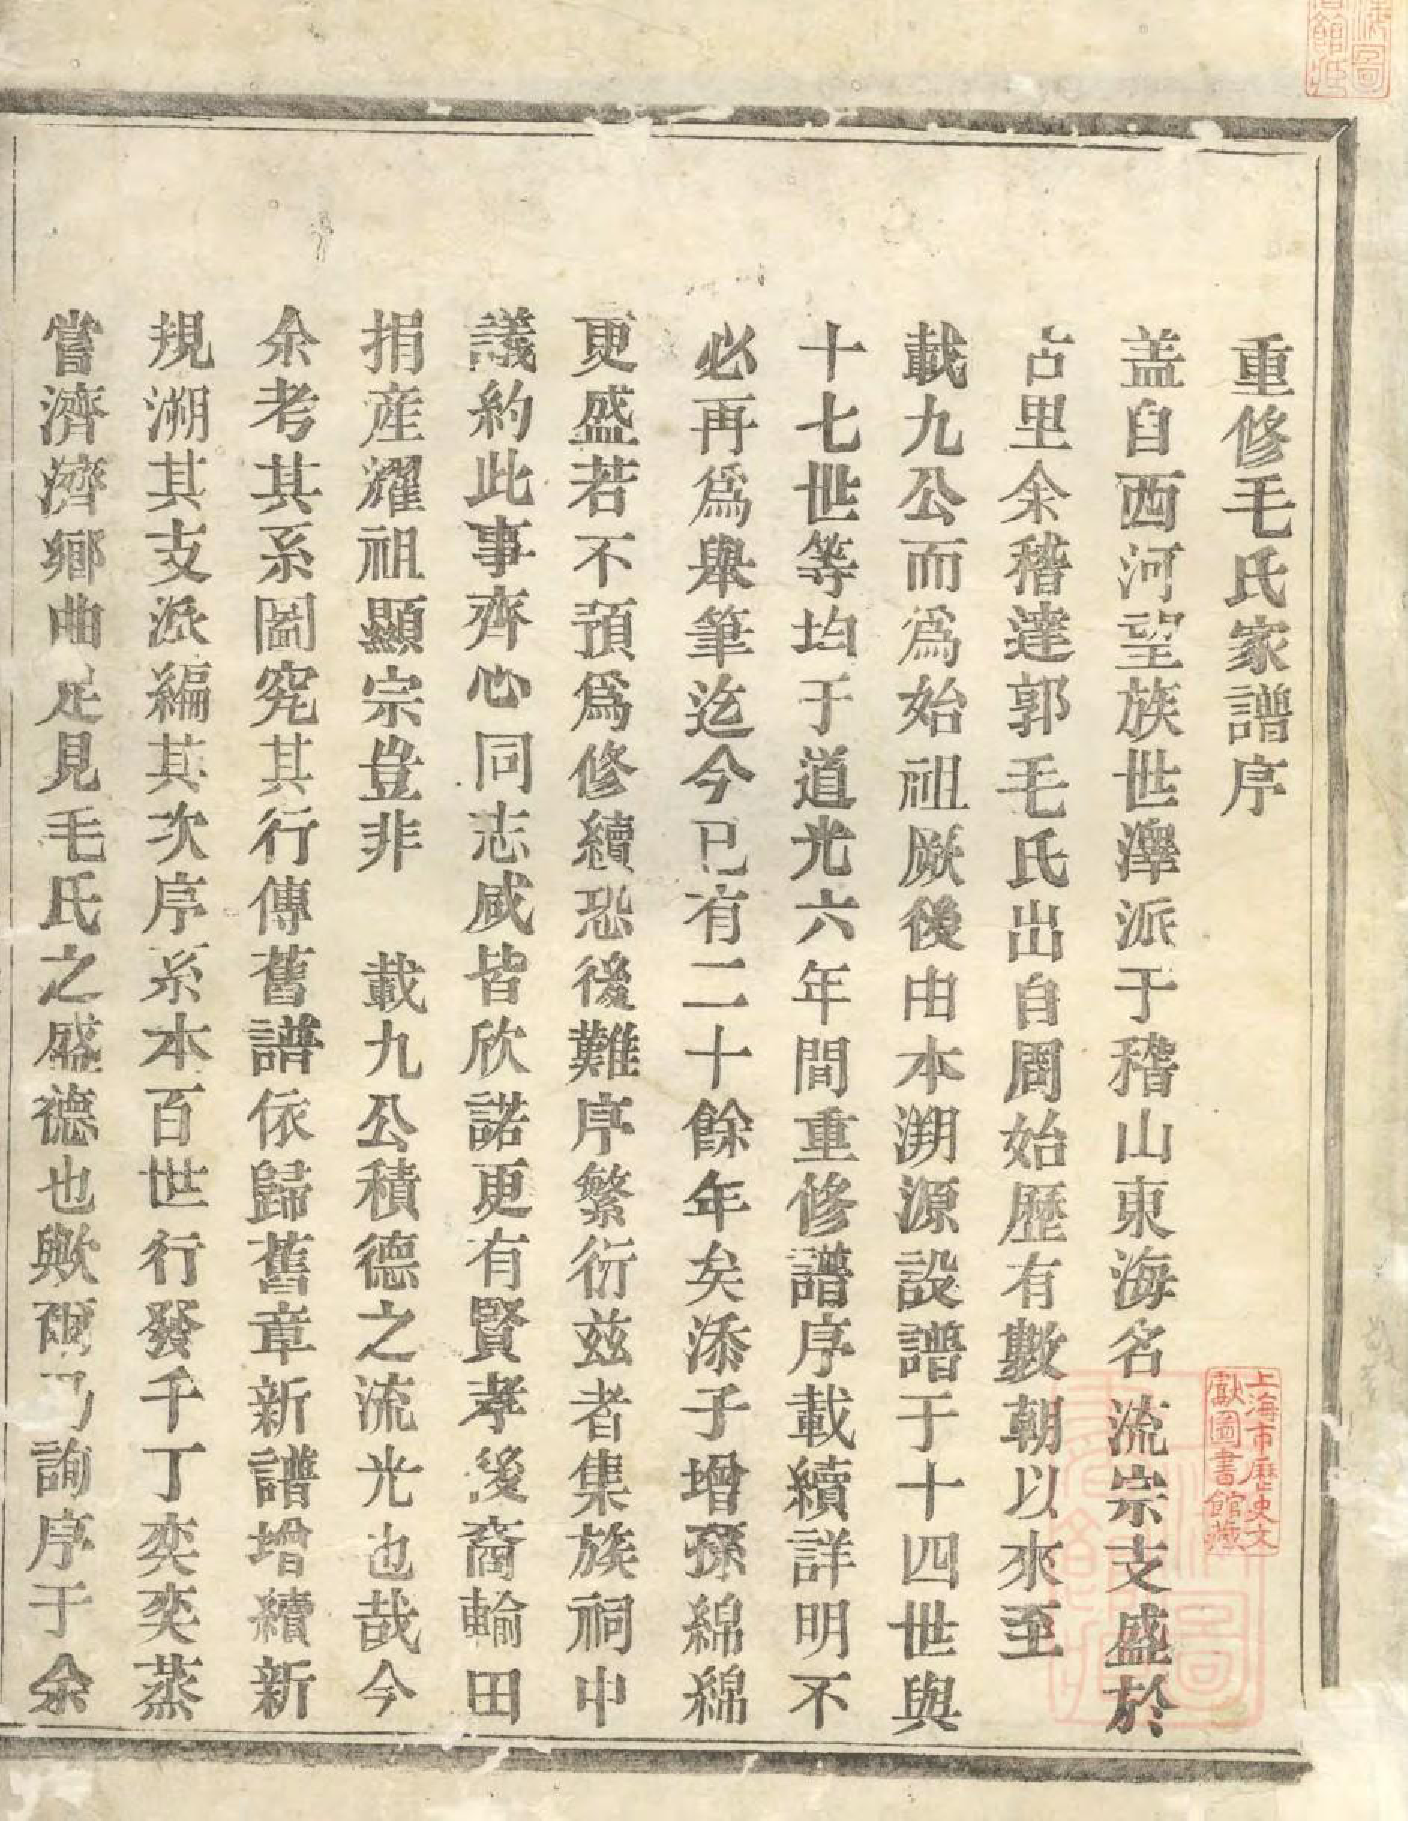 重修毛氏家譜序
盖自西河望族世澤派于稽山東海名流宗支盛於
古里余稽達郭毛氏出自周始歷有數朝以來至
載九公而爲始祖厥後由本溯源設譜于十四世與
十七世等均于道光六年間重修譜序載續詳明不
必再爲舉筆迄今已有二十餘年矣添子增孫綿綿
更盛若不預爲修續恐後難序繁衍兹者集族祠中
議約此事齊心同志咸皆欣諾更有賢孝後裔輸田
捐産耀祖顯宗豈非　載九公積德之流光也哉今
余考其系圖究其行傳舊譜依歸舊章新譜增續新
規溯其支派編其次序系本百世行發千丁奕奕蒸
嘗濟濟鄉曲足見毛氏之盛德也歟爾乃詢序于余
上海市歷史文
獻圖書館藏